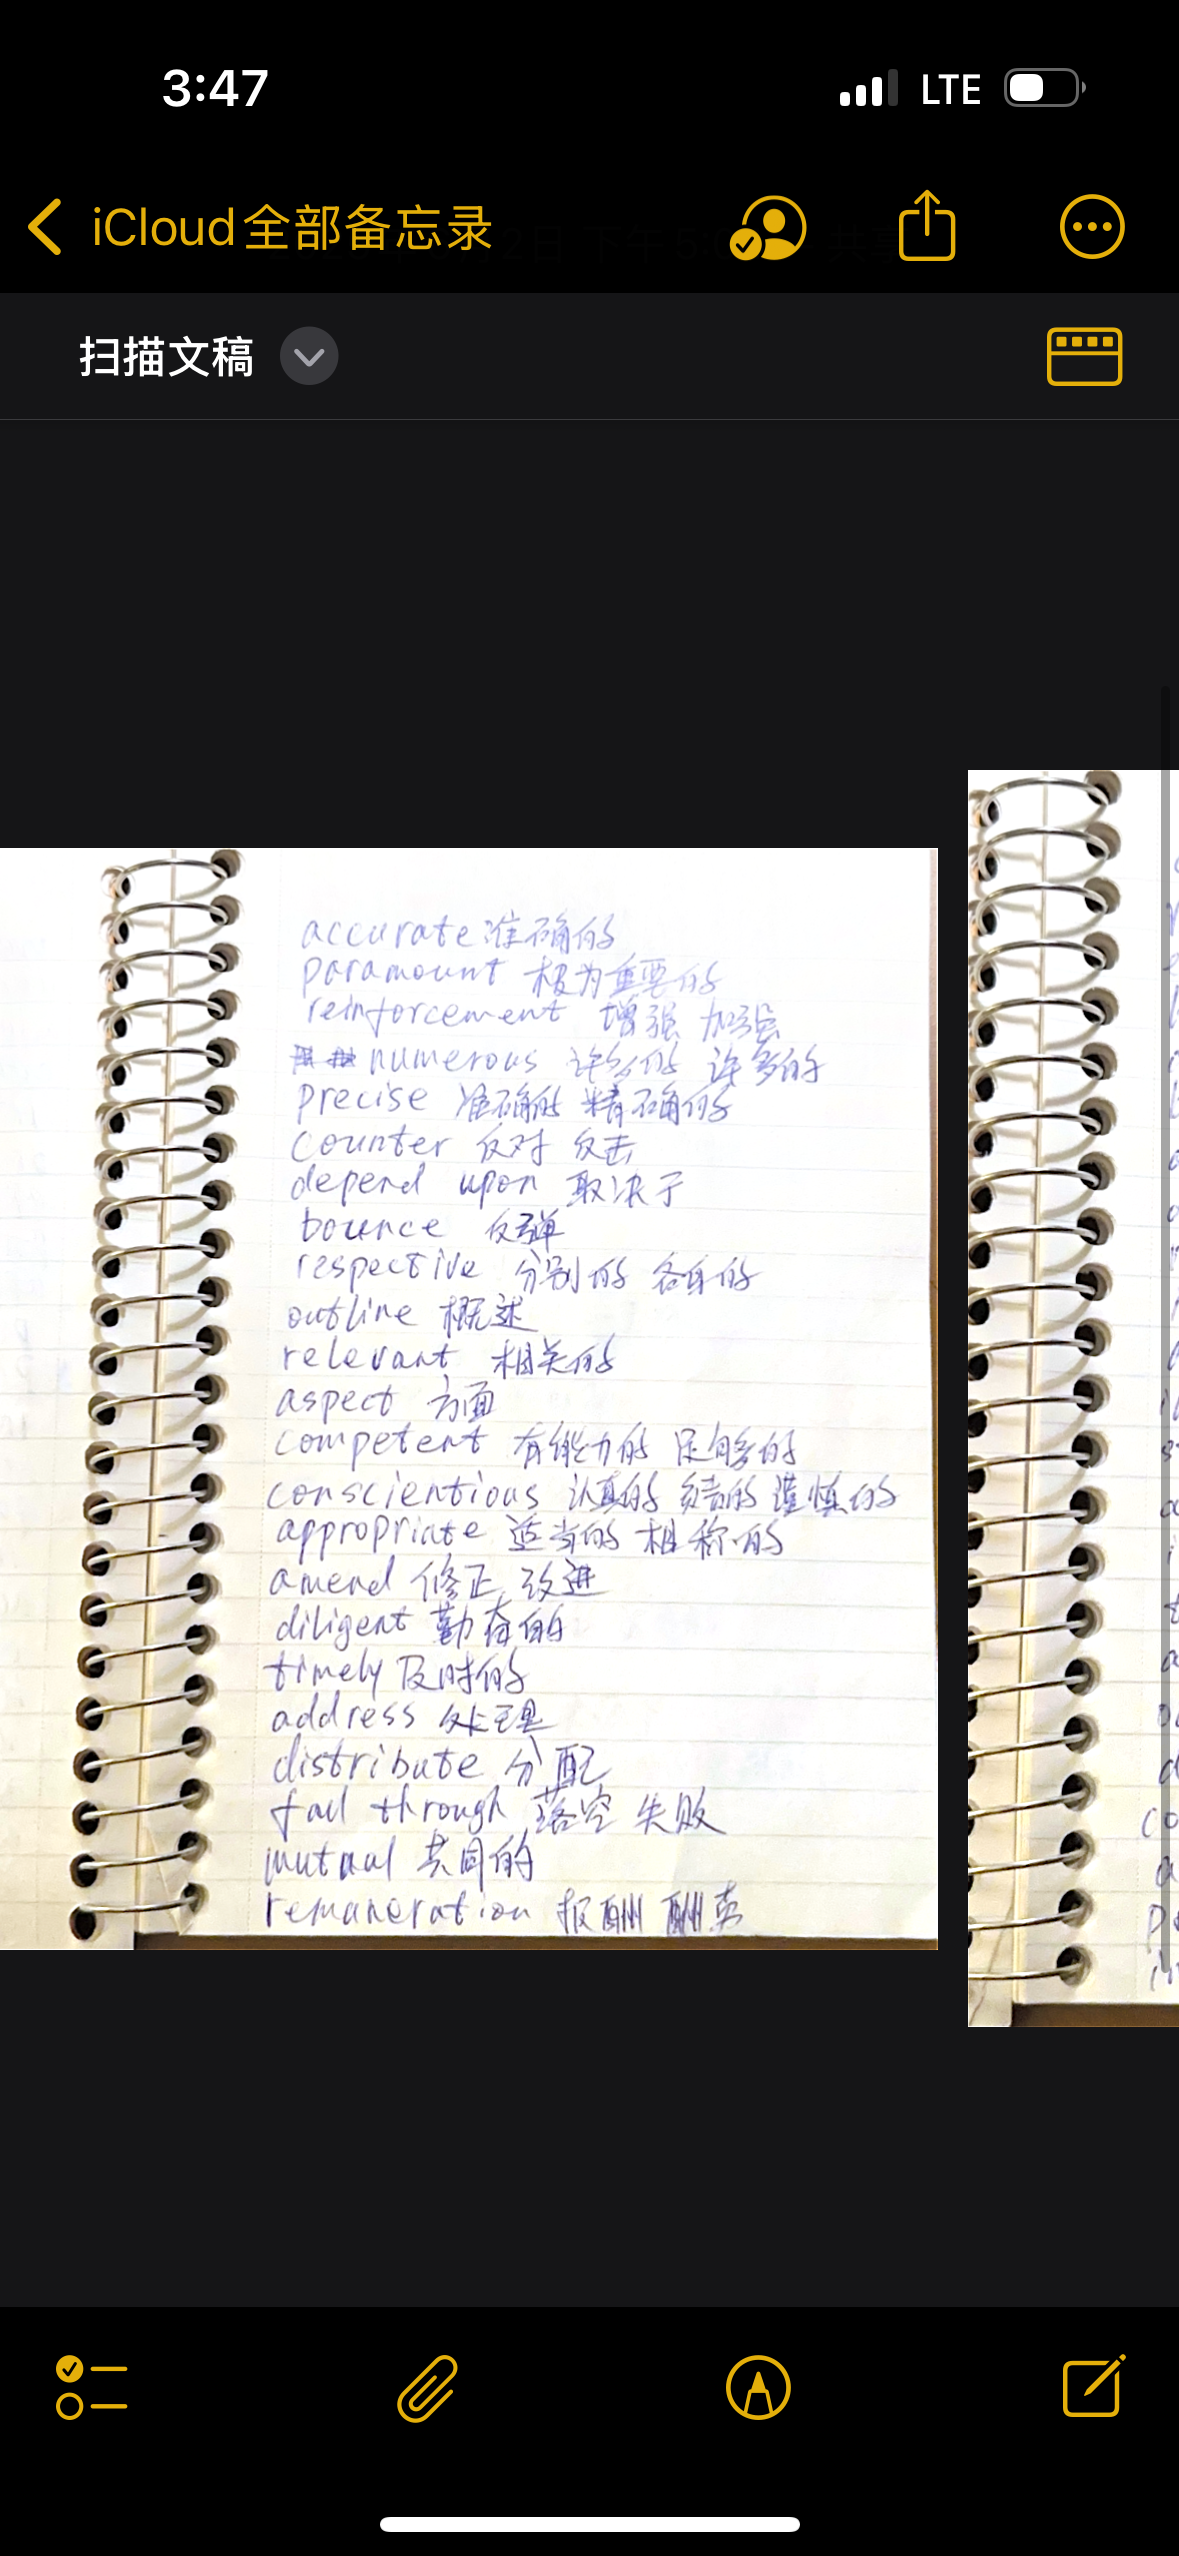 3:47 LTE
iCloud全部备忘录
扫描文稿
accurate 准确的
paramount 极为重要的
reinforcement 增强 加强
numerous 许多的 许多的
precise 准确的 精确的
counter 反对 反击
depend upon 取决于
bounce 反弹
respective 分别的 各自的
outline 概述
relevant 相关的
aspect 方面
competent 有能力的 足够的
conscientious 认真的 负责的 谨慎的
appropriate 适当的 相称的
amend 修正 改进
diligent 勤奋的
timely 及时的
address 处理
distribute 分配
fall through 落空 失败
mutual 共同的
remaneration 报酬 酬劳